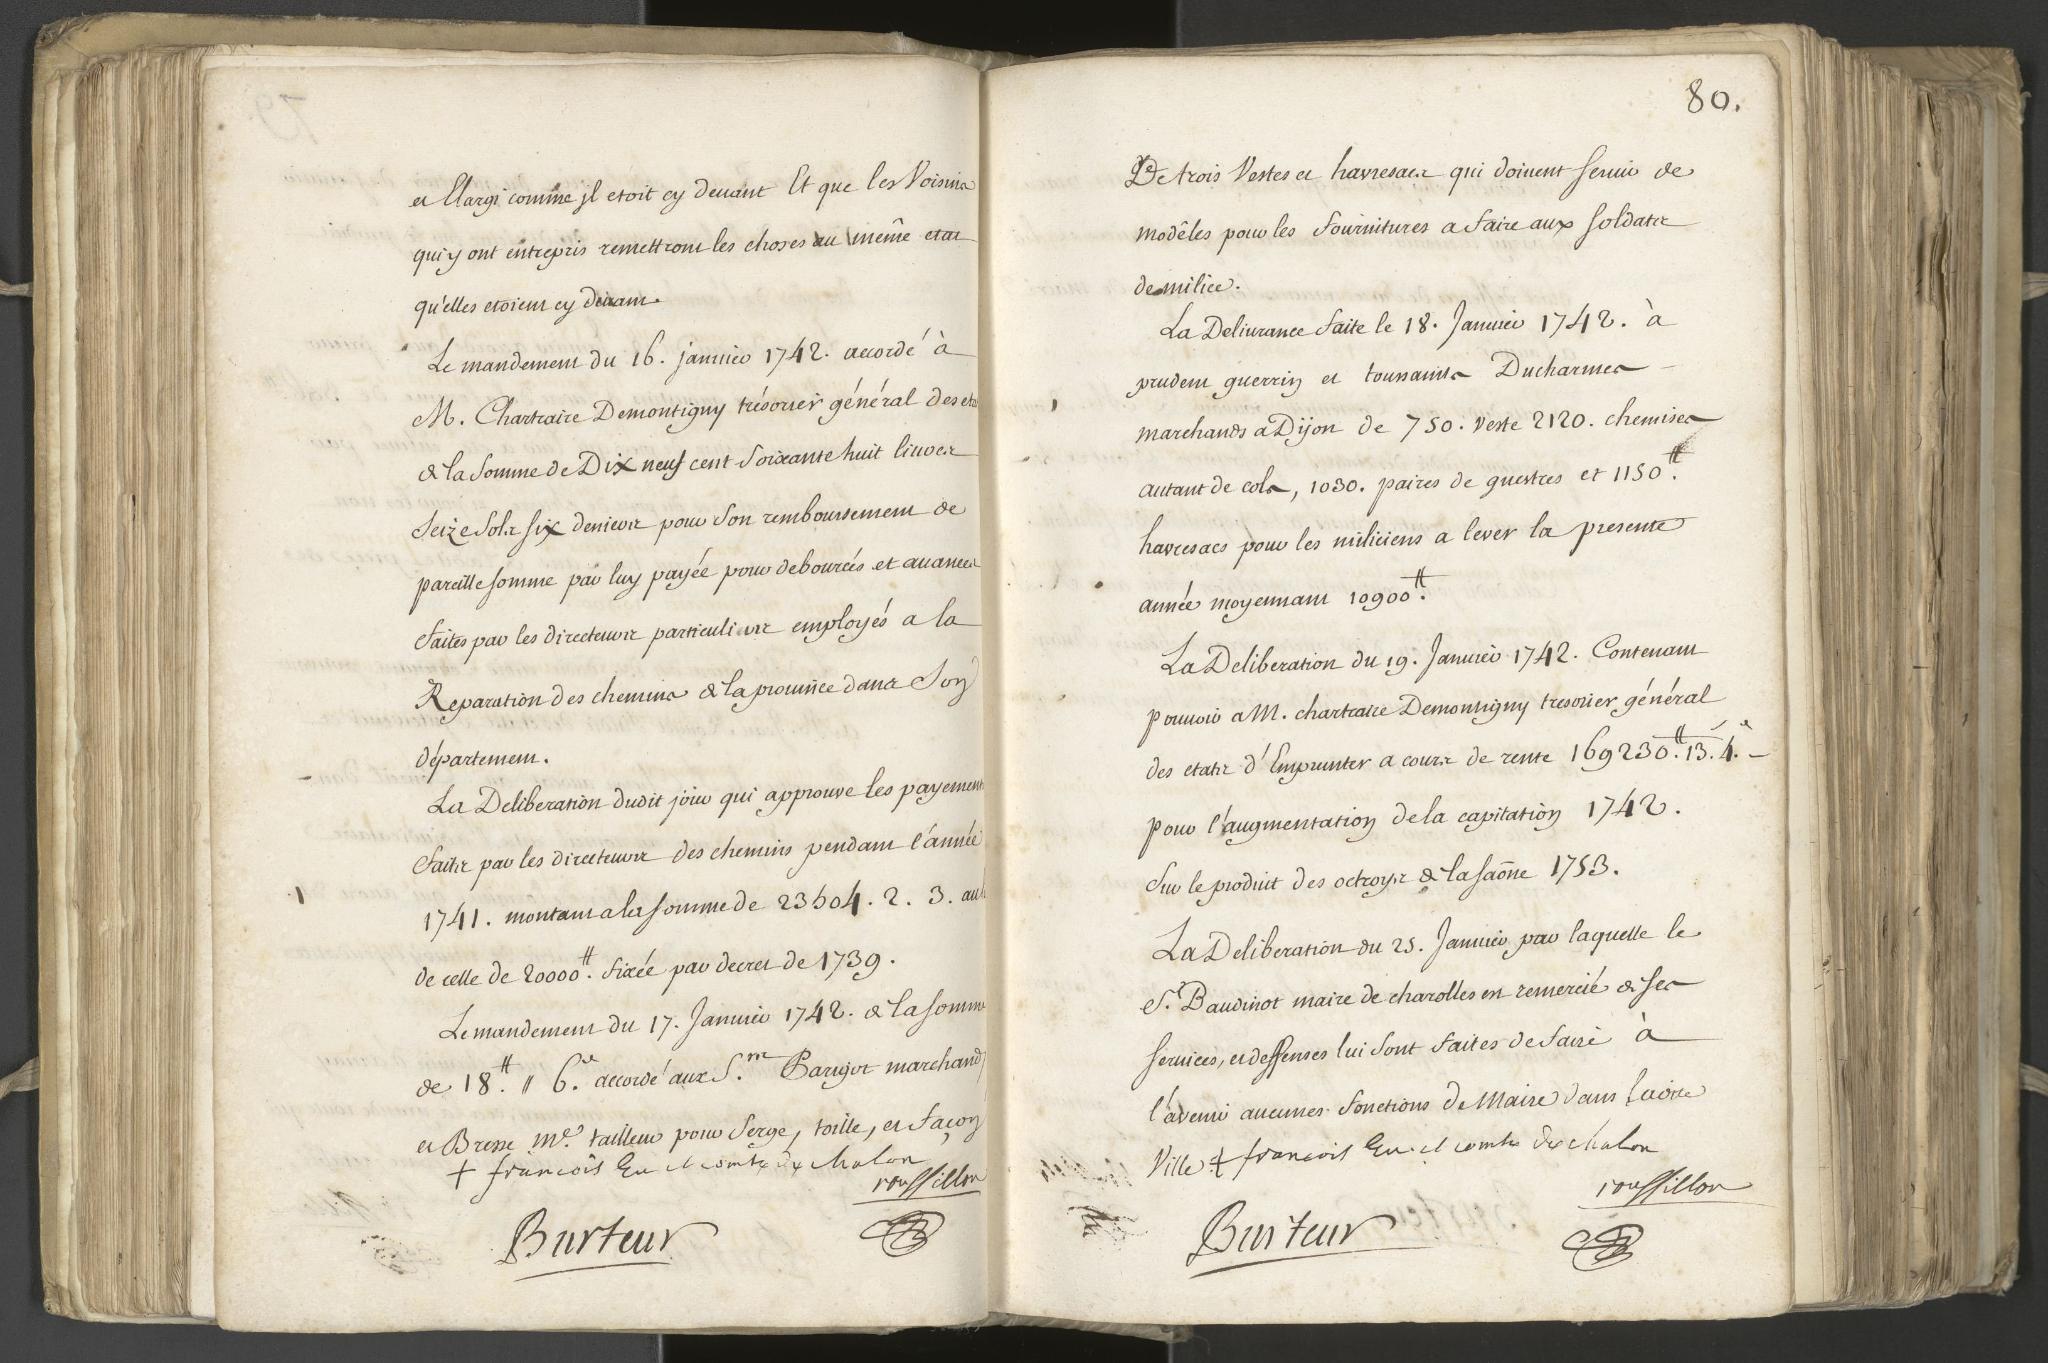 et Elargi comme jl etoit cy devant Et que les Voisins
qui y ont entrepris remettront les choses au même etat
qu'elles etoient cy devant.
Le mandement du 16. janvier 1742. accordé à
M. Chartraire Demontigny trésorier général des etats
de la Somme de Dix neuf cent Soixante huit livres
Seize Sols six deniers pour Son remboursement de
pareille Somme par luy payée pour debourcés et avances
faites par les directeurs particuliers employés a la
Reparation des chemins de la province dans Son
département.
La Deliberation dudit jour qui approuve les payements
faits par les directeurs des chemins pendant l'année
1741. montant a la somme de 23504. 2. 3. au lieu
de celle de 20000ᵗᵗ. fixée par decret de 1739.
Le mandement du 17. Janvier 1742. de la Somme
de 18.ᵗᵗ " 6.ᵈ accordé aux S.ʳˢ Parigot marchand
et Bresse mᵉ. tailleur pour Serge, toille, et façon
+ françois Eu. et comte de chalon
roussillon
Burteur
80.
De trois Vestes et havresacs qui doivent servir de
modêles pour les fournitures a faire aux soldats
de milice.
La Delivrance faite le 18. Janvier 1742. à
prudent guerrin et toussaints Ducharmes
marchands a Dijon de 750. veste 2120. chemises
autant de cols, 1030. paires de guestres et 1150.ᵗᵗ
havresacs pour les miliciens a lever la presente
année moyennant 10900ᵗᵗ.
La Deliberation du 19. Janvier 1742. Contenant
pouvoir a M. chartraire Demontigny tresorier général
des etats d'Emprunter a cours de rente 169230ᵗᵗ. 13.ˢ 4.ᵈ
pour l'augmentation de la capitation 1742.
Sur le produit des octroys de la saône 1753.
La Deliberation du 25. Janvier par laquelle le
S.ʳ Baudinot maire de charolles est remercié de ses
services, et deffenses lui sont faites de faire à
l'avenir aucunes fonctions de Maire dans laditte
Ville. + françois Eu. et comte de chalon
roussillon
Burteur